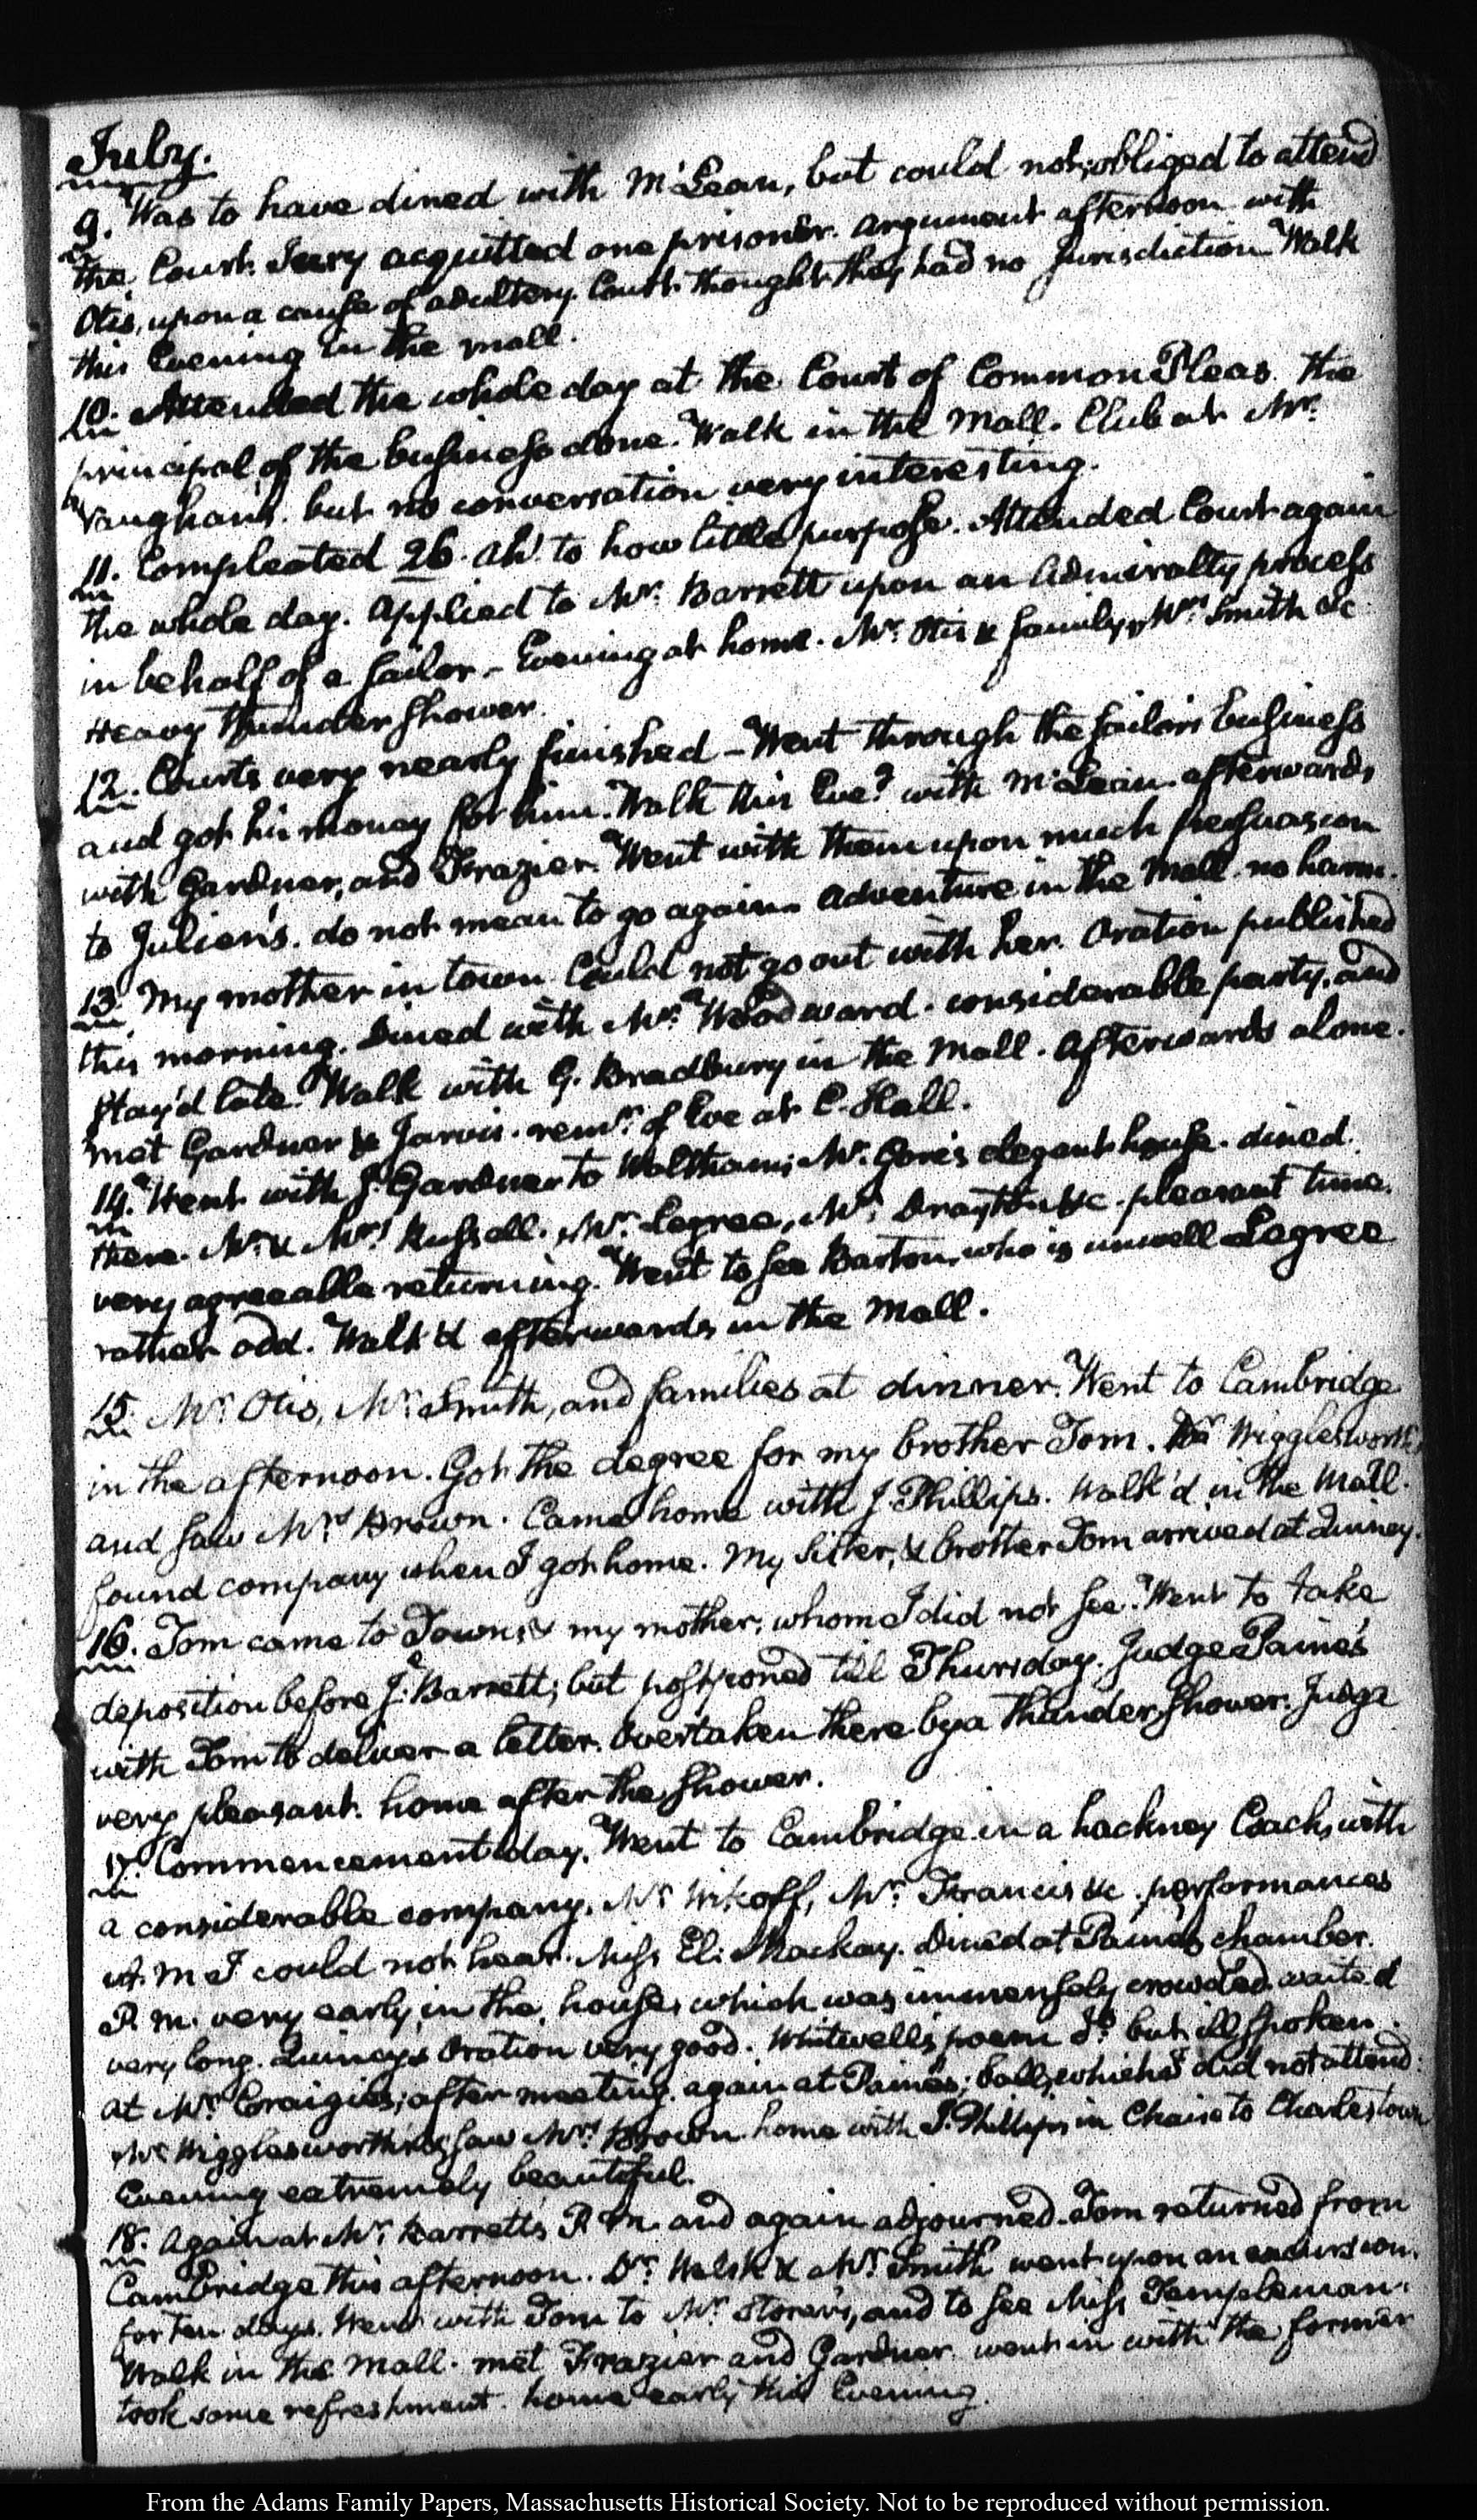 July.
9. Was to have dined with McLean, but could not; obliged to attend
the Court. Jury acquitted one prisoner. argument afternoon with
Otis, upon a cause of adultery. Court thought they had no Jurisdiction. Walk
this Evening in the mall.
10. Attended the whole day at the Court of Common Pleas. the
principal of the business done. Walk in the Mall. Club at Mr.
Vaughan's. but no conversation very interesting.
11. Compleated 26. Ah! to how little purpose. Attended Court again
the whole day. Applied to Mr. Barrett upon an Admiralty process
in behalf of a sailor. Evening at home. Mr. Otis & family, Mrs. Smith &c
Heavy thunder shower.
12. Courts very nearly finished – Went through the sailors business
and got his money for him. Walk this Eve.g with McLean. afterwards
with Gardner, and Frazier. Went with them upon much persuasion
to Julien's. do not mean to go again. Adventure in the Mall. no harm.
13. My mother in town. Could not go out with her. Oration published
this morning. Dined with Mr. Woodward. considerable party, and
stay'd late. Walk with G. Bradbury in the Mall. Afterwards alone.
met Gardner & Jarvis. remr. of Eve at C. Hall.
14. Went with J. Gardner to Waltham; Mr. Gore's elegant house. dined.
there. Mr. & Mrs. Russell. Mr. Legree, Mr. Drayton &c. pleasant time.
very agreeable returning. Went to see Barton, who is unwell Legree
rather odd. Walk'd afterwards in the Mall.
15. Mr. Otis, Mr. Smith, and families at dinner. Went to Cambridge
in the afternoon. Got the degree for my brother Tom. Dr. Wigglesworth,
and saw Mrs. Brown. Came home with J. Phillips. Walk'd in the Mall.
found company when I got home. My Sister, & brother Tom arrived at Quincy.
16. Tom came to Town, & my mother, whom I did not see. Went to take
deposition before J. Barrett; but postponed till Thursday. Judge Paine's
with Tom to deliver a letter. Overtaken there by a Thunder shower. Judge
very pleasant. home after the shower.
17. Commencement day. Went to Cambridge in a hackney Coach, with
a considerable company. Mr. Wikoff, Mr. Francis &c. performances
A.M. I could not hear. Miss Eli. Mackay. Dined at Paine's chamber.
P.M. very early, in the house, which was immensely crowded. waited
very long. Quincy's Oration very good. Whitwell's poem Do. but ill spoken.
at Mr. Craigie's; after meeting. again at Paine's; ball, which I did not attend.
Mr. Wigglesworth's, saw Mrs. Brown. home with J. Phillips in Chaise to Charlestown
Evening extremely beautiful.
18. Again at Mr. Barrett's P.M. and again adjourned. Tom returned from
Cambridge this afternoon. Dr. Welsh & Mr. Smith went upon an excursion.
for ten days. Went with Tom to Mr. Storer's, and to see Miss Templeman.
Walk in the Mall. met Frazier and Gardner. went in with the former
took some refreshment. home early this Evening.
From the Adams Family Papers, Massachusetts Historical Society. Not to be reproduced without permission.